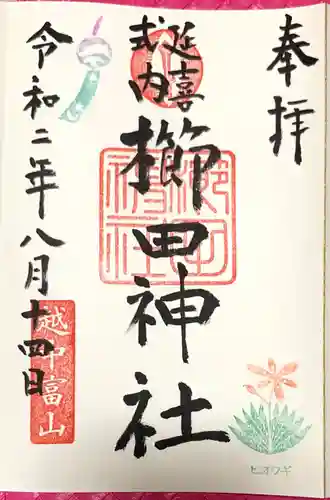 奉拝
延喜
式内
櫛田神社
櫛田神社
令和二年八月十四日
越中富山
ヒオウギ